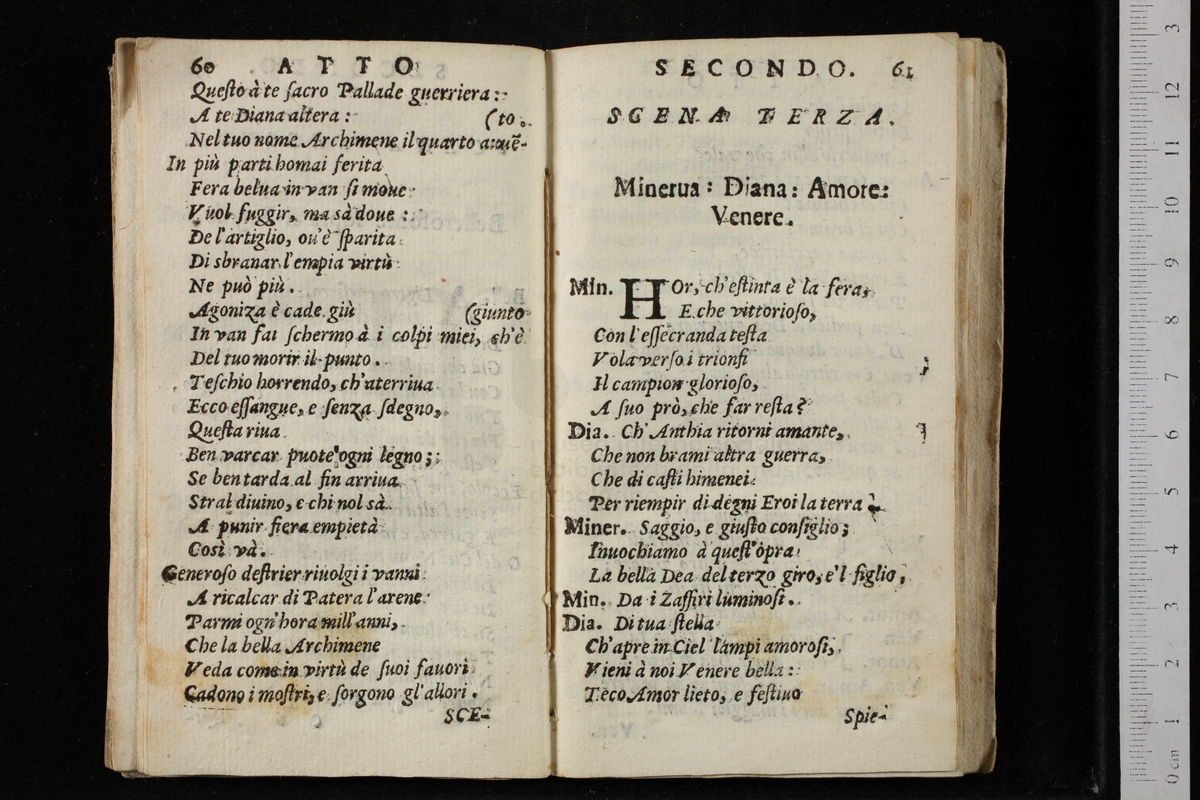 60 ATTO
Questo à te sacro Pallade guerriera:
A te Diana altera: (to.
Nel tuo nome Archimene il quarto auuẽ-
In più parti homai ferita
Fera belua in van si moue
Vuol fuggir, ma sà doue:
De l'artiglio, ou'è sparita
Di sbranar l'empia virtù
Ne può più.
Agoniza è cade giù (giunto
In van fai schermo à i colpi miei, ch'è
Del tuo morir il punto.
Teschio horrendo, ch'aterriua
Ecco essangue, e senza sdegno,
Questa riua
Ben varcar puote ogni legno;
Se ben tarda al fin arriua
Stral diuino, e chi nol sà
A punir fiera empietà
Così và.
Generoso destrier riuolgi i vanni
A ricalcar di Patera l'arene
Parmi ogn'hora mill'anni,
Che la bella Archimene
Veda come in virtù de suoi fauori
Cadono i mostri, e sorgono gl'allori.
SCE-
SECONDO. 61
SCENA TERZA.
Minerua: Diana: Amore:
Venere.
Min. HOr, ch'estinta è la fera,
E che vittorioso,
Con l'essecranda testa
Vola verso i trionfi
Il campion glorioso,
A suo prò, che far resta?
Dia. Ch'Anthia ritorni amante,
Che non brami altra guerra,
Che di casti himenei
Per riempir di degni Eroi la terra
Miner. Saggio, e giusto consiglio;
Inuochiamo à quest'opra
La bella Dea del terzo giro, e'l figlio,
Min. Da i Zaffiri luminosi.
Dia. Di tua stella
Ch'apre in Ciel lampi amorosi,
Vieni à noi Venere bella:
Teco Amor lieto, e festiuo
Spie-